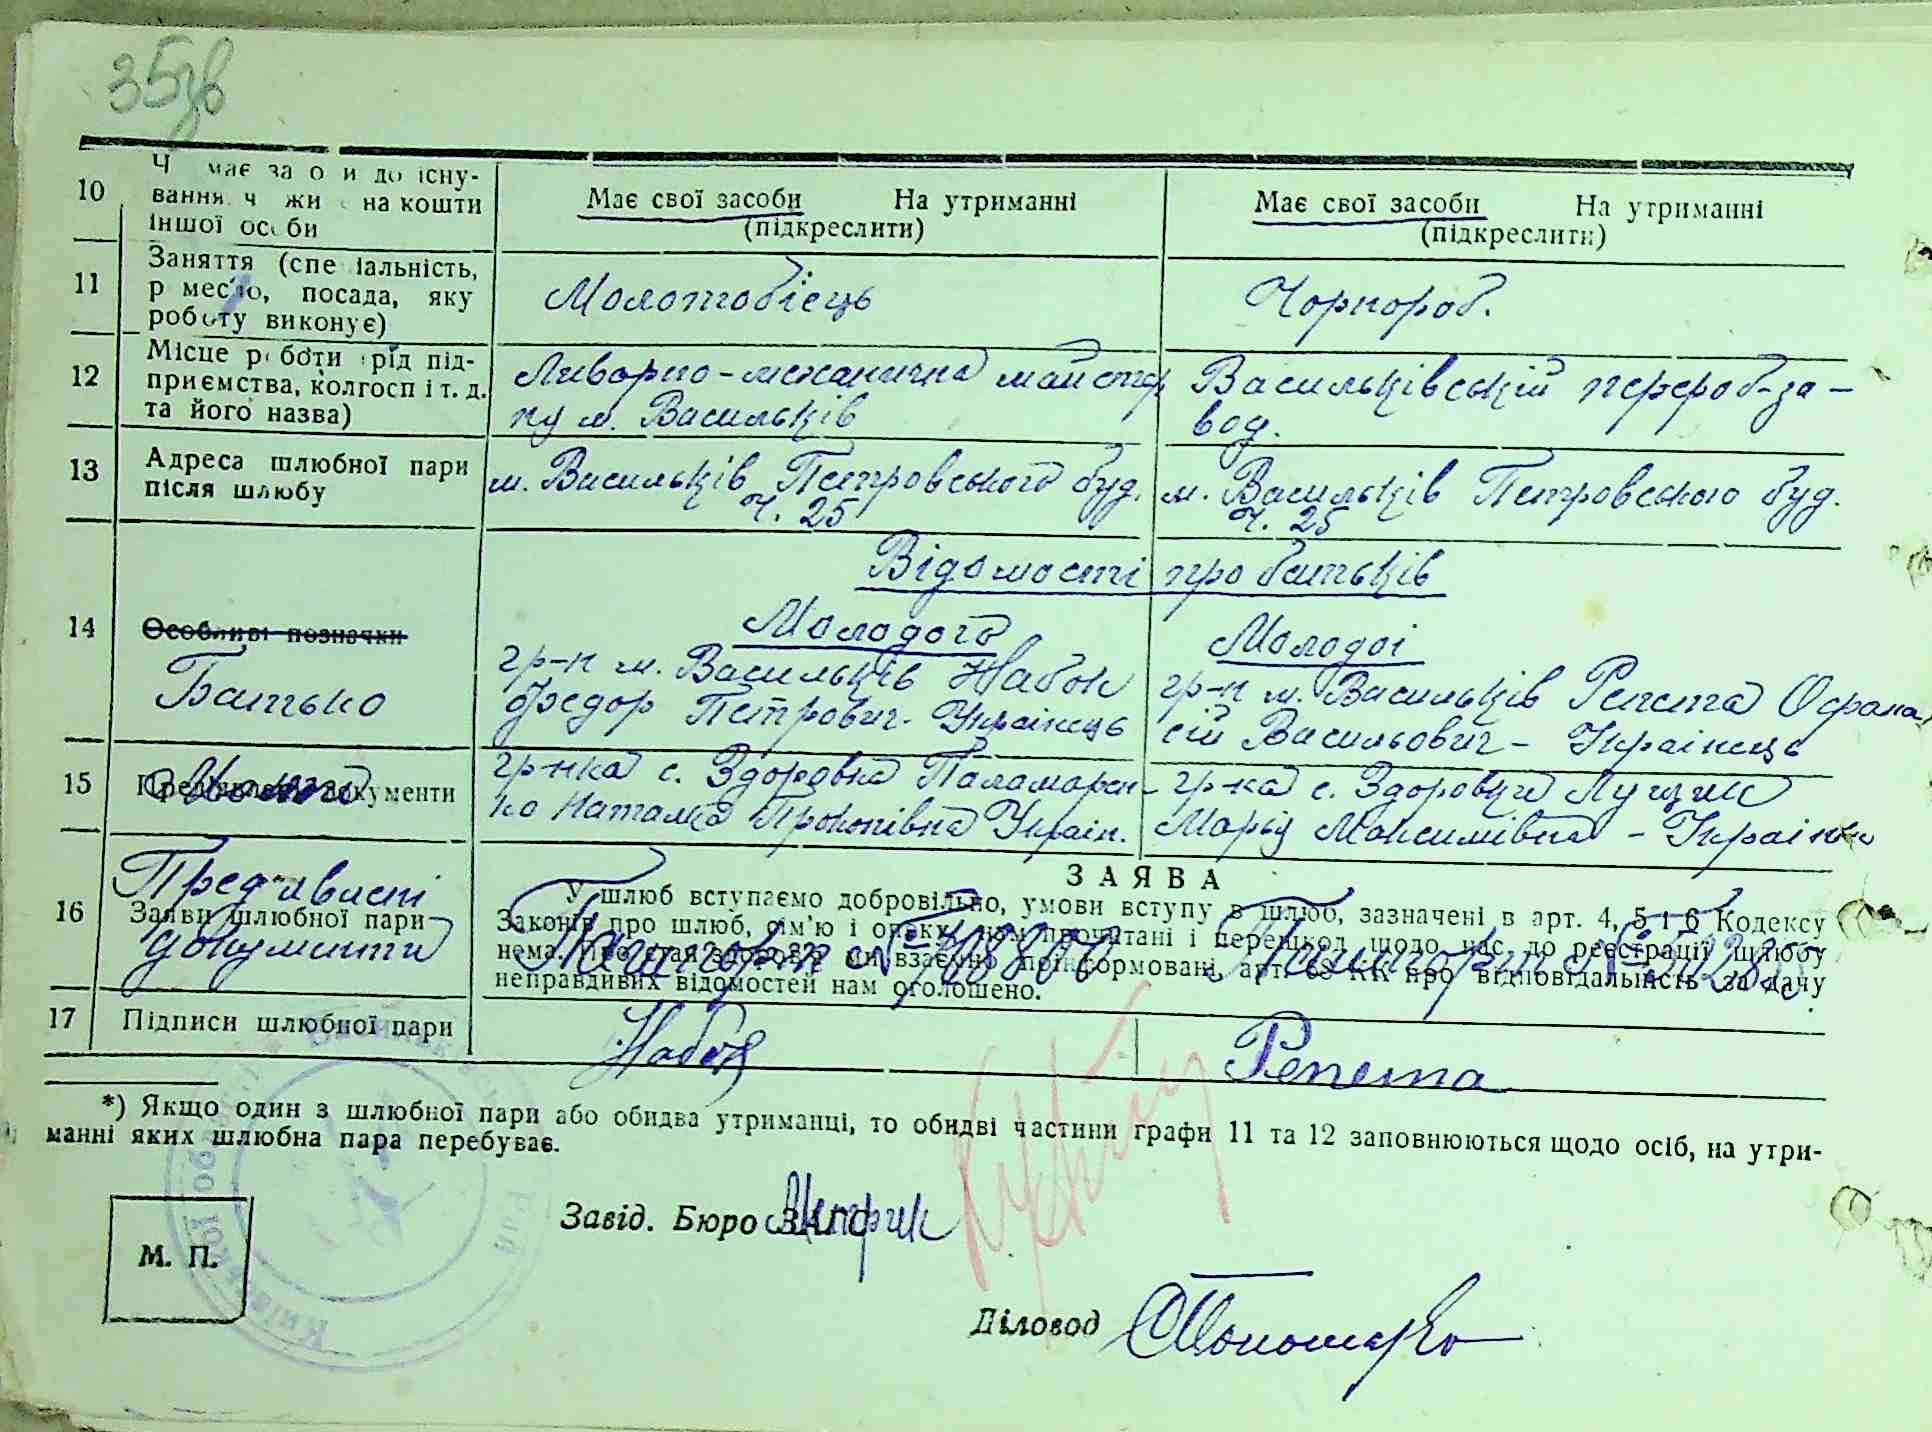 35зв
10
Ч має за о и до існу-
вання ч жи на кошти
іншої особи
Має свої засоби На утриманні
(підкреслити)
Має свої засоби На утриманні
(підкреслити)
11
Заняття (спе іальність,
р месло, посада, яку
роботу виконує)
Молотобієць
Чорнороб.
12
Місце роботи рід під-
приємства, колгосп і т. д.
та його назва)
Ливарно-механична майстер
ну м. Васильків
Васильківській перероб-за-
вод.
13
Адреса шлюбної пари
після шлюбу
м. Васильків Петровського буд.
Ч. 25
м. Васильків Петровського буд.
Ч. 25
Відомості про батьків
14
Особливі позначки
Батько
Молодого
гр-н м. Васильків Набок
Федор Петрович. Українець
Молодої
гр-н м. Васильків Репета Офана
сій Васильович - Українець
15
документи
гр-нка с. Здоровка Паламарен-
ко Наталка Прокопівна Україн.
гр-ка с. Здоровки Лущик
Марія Максимівна - Українка
16
Пред'явлені
Заяви шлюбної пари
документи
ЗАЯВА
У шлюб вступаємо добровільно, умови вступу в шлюб, зазначені в арт. 4, 5 і 6 Кодексу
Законів про шлюб, сім'ю і опіку, нам прочитані і перешкод щодо нас до реєстрації шлюбу
нема. Про стан здоров'я ми взаємно поінформовані, арт. 68 КК про відповідальність за дачу
неправдивих відомостей нам оголошено.
Пашпорт №
Пашпорт №
17
Підписи шлюбної пари
Набок
Репета
*) Якщо один з шлюбної пари або обидва утриманці, то обидві частини графи 11 та 12 заповнюються щодо осіб, на утри-
манні яких шлюбна пара перебуває.
Завід. Бюро ЗАГС
М. П.
Діловод
Київської